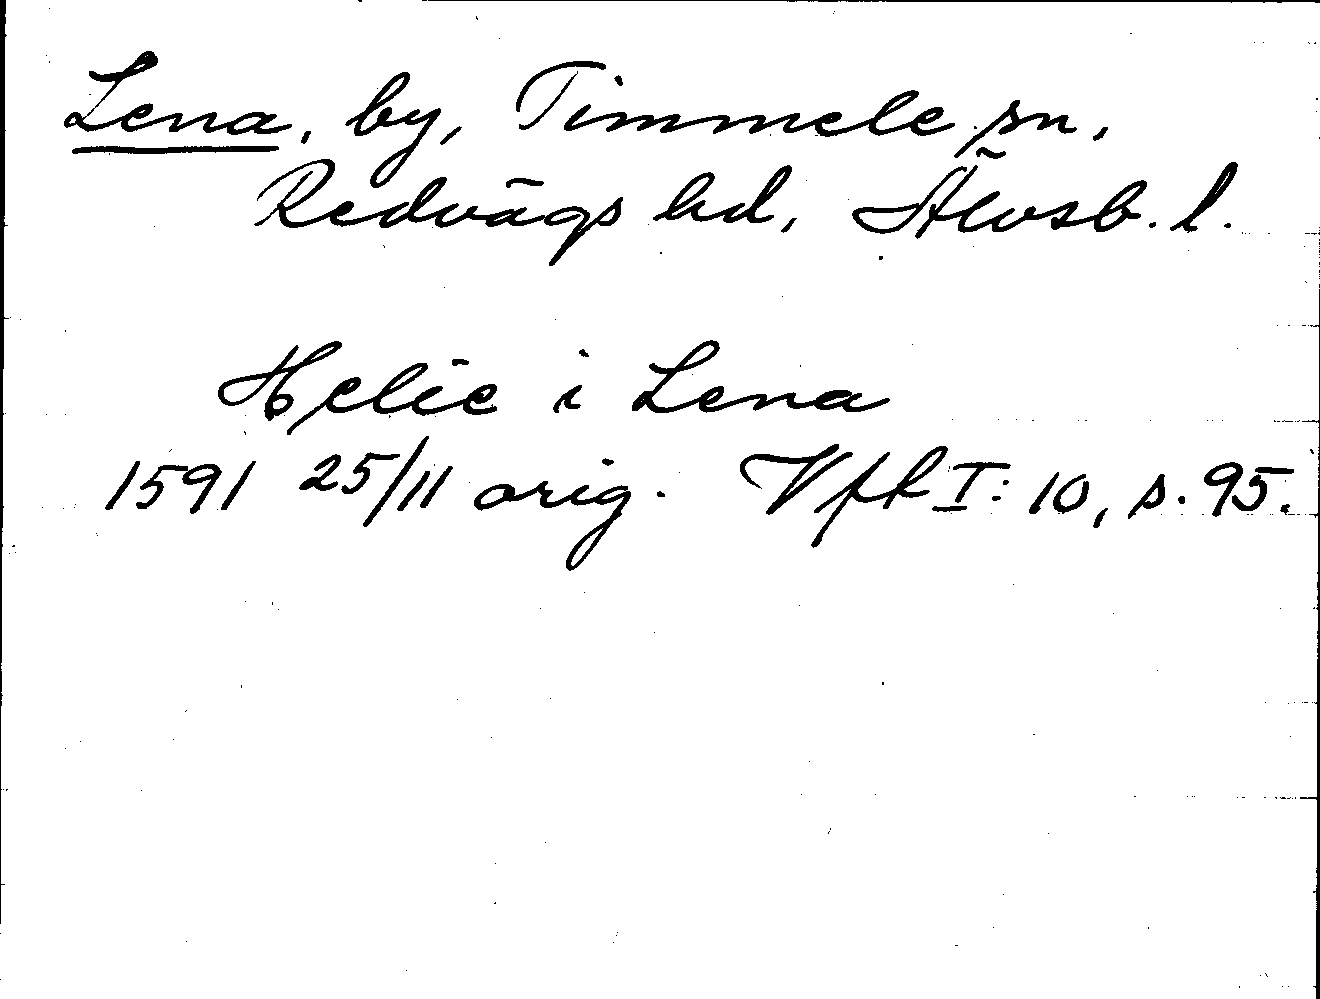 Lena, by, Timmele sn,
Redvägs hd, Älvsb. l.
Helie i Lena
1591 25/11 orig. VfR I: 10, s. 95.